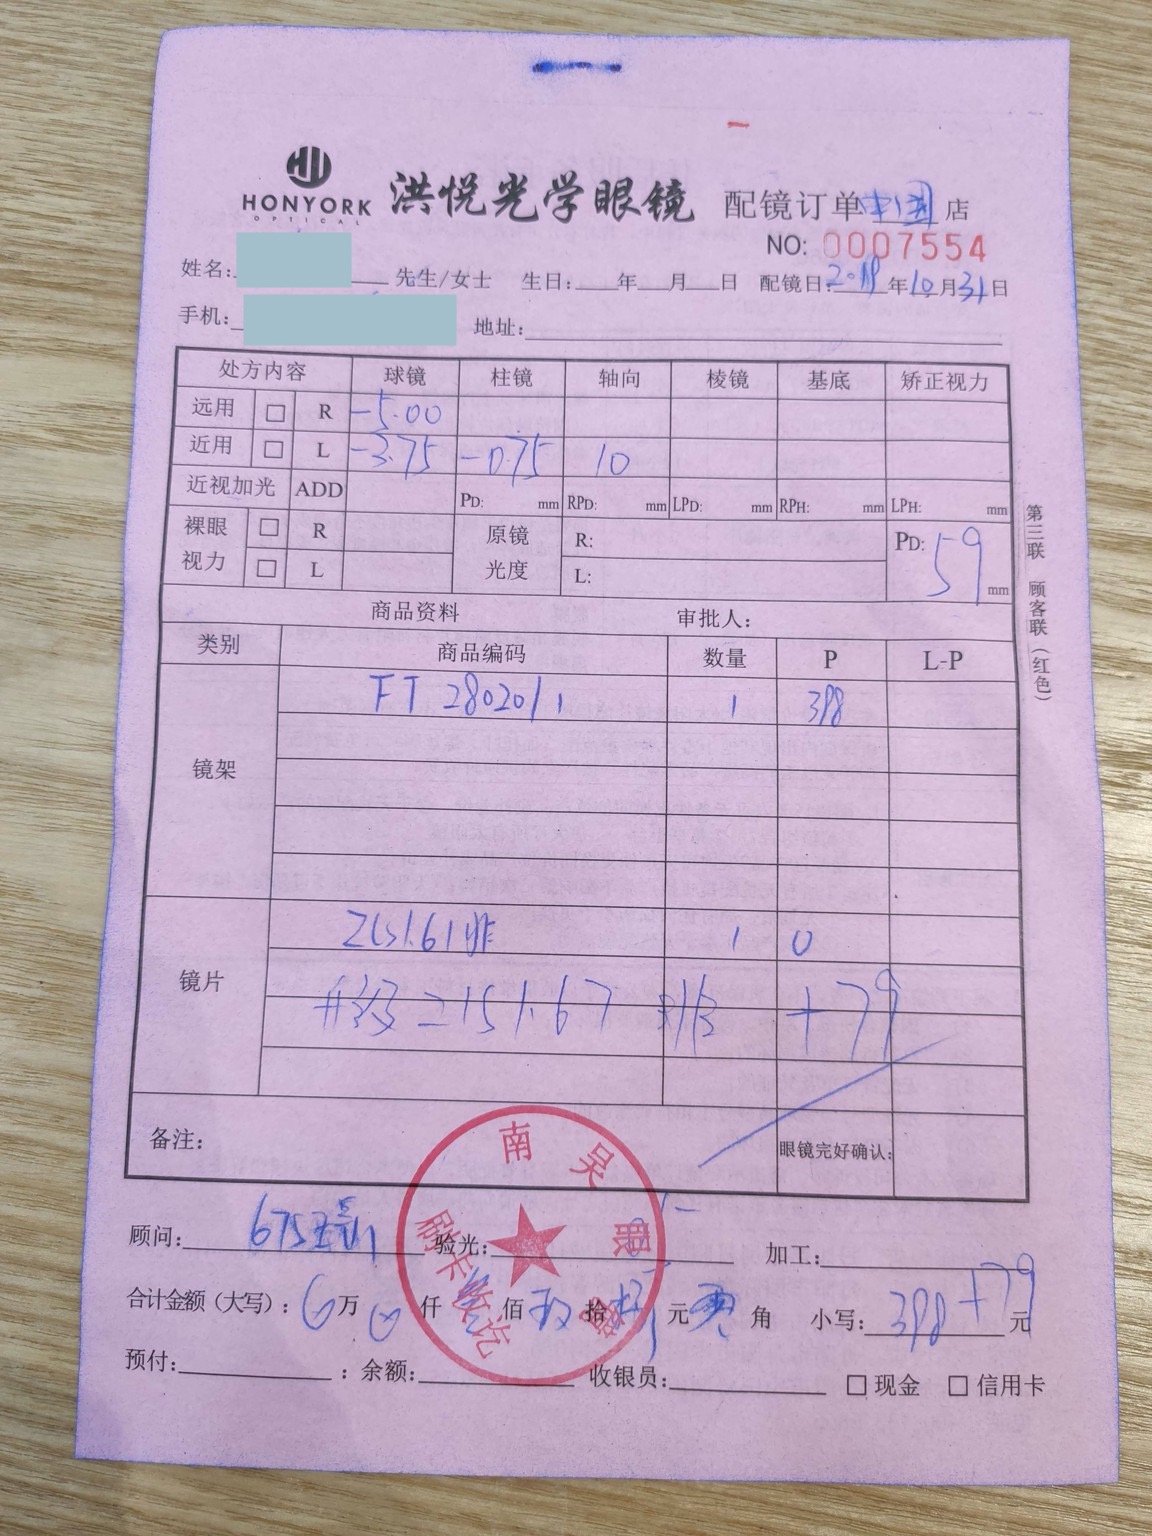 HONYORK
OPTICAL
洪悦光学眼镜 配镜订单 店
NO: 0007554
姓名: 先生/女士 生日: 年 月 日 配镜日: 2019年10月31日
手机: 地址:
处方内容 球镜 柱镜 轴向 棱镜 基底 矫正视力
远用 R -5.00
近用 L -3.75 -0.75 10
近视加光 ADD PD: mm RPD: mm LPD: mm RPH: mm LPH: mm
裸眼视力 R L 原镜光度 R: L: PD: 59 mm
第三联 顾客联(红色)
商品资料 审批人:
类别 商品编码 数量 P L-P
镜架 FT 28020/1 1 398
镜片 1.61非 1 0
升级 1.67 +79
备注: 眼镜完好确认:
顾问: 675 验光: 加工:
合计金额(大写): 万 仟 佰 拾 元 角 小写: 398+79 元
预付: : 余额: 收银员: 现金 信用卡
南昊眼镜
刷卡收讫